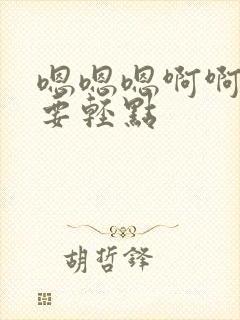 嗯嗯嗯啊啊
要轻點
胡哲铎